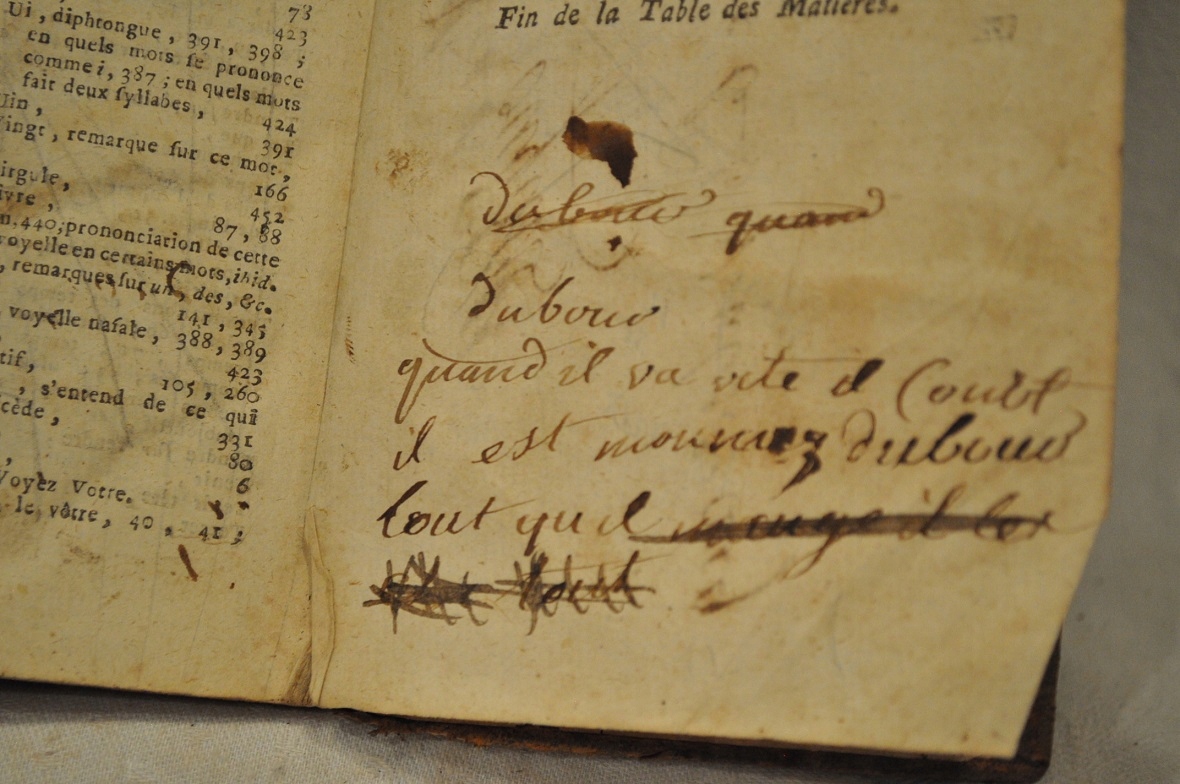 78
423
Ui, diphtongue, 391, 398;
en quels mots ſe prononce
comme i, 387; en quels mots
fait deux ſyllabes, 424
Uin, 391
Vingt, remarque ſur ce mot,
166
irgule, 452
ivre, 87, 88
n, 440; prononciation de cette
voyelle en certains mots, ibid.
, remarques ſur un, des, &c.
141, 345
voyelle naſale, 388, 389
423
tif, 105, 260
, s'entend de ce qui
cède, 331
80
, 6
Voyez Votre.
le vôtre, 40, 41;
Fin de la Table des Matières.
dubouv quand
dubouv
quand il va vite il
il est dubouv
tout quil mange il
tout